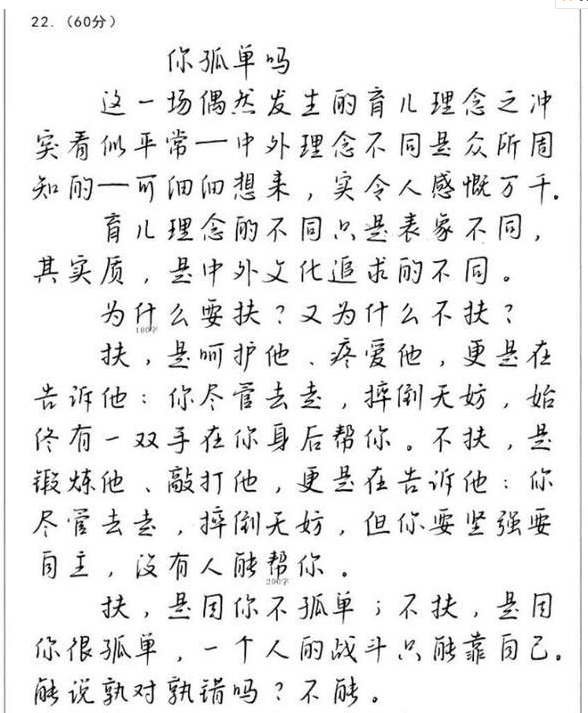 22.（60分）
你孤单吗
这一场偶然发生的育儿理念之冲
突看似平常——中外理念不同是众所周
知的——可细细想来，实令人感慨万千。
育儿理念的不同只是表象不同，
其实质，是中外文化追求的不同。
为什么要扶？又为什么不扶？
100字
扶，是呵护他、疼爱他，更是在
告诉他：你尽管去走，摔倒无妨，始
终有一双手在你身后帮你。不扶，是
锻炼他、敲打他，更是在告诉他：你
尽管去走，摔倒无妨，但你要坚强要
自主，没有人能帮你。
200字
扶，是因你不孤单；不扶，是因
你很孤单，一个人的战斗只能靠自己。
能说孰对孰错吗？不能。